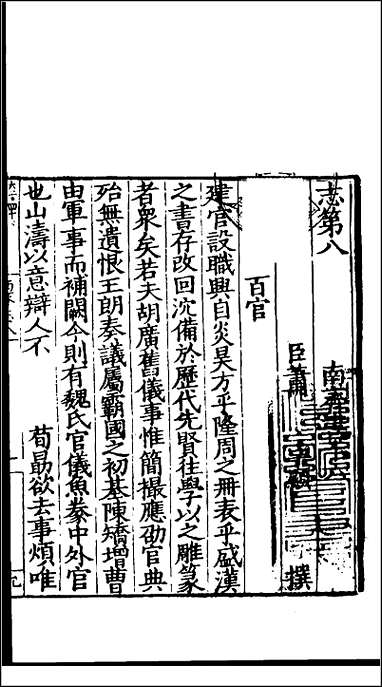 志第八　南齊書
臣蕭　子顯　撰
百官
建官設職興自炎昊方乎隆周之冊表乎盛漢
之書存改回沇備於歷代先賢往學以之雕篆
者衆矣若夫胡廣舊儀事惟簡撮應劭官典
殆無遺恨王朗奏議屬霸國之初基陳矯增曹
由軍事而補闕今則有魏氏官儀魚豢中外官
也山濤以意辯人不　荀勗欲去事煩唯